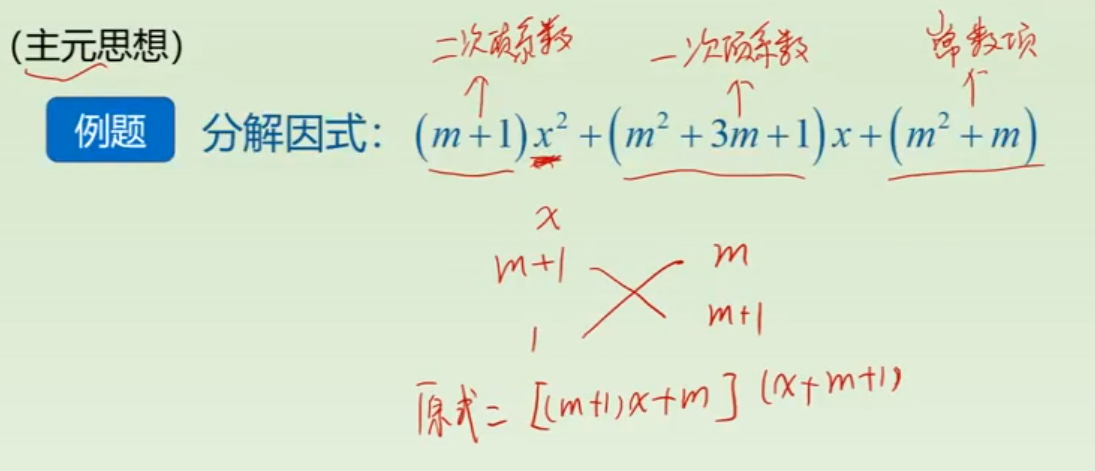 (主元思想)
二次项系数 一次项系数 常数项
例题 分解因式: (m+1)x² + (m² + 3m + 1)x + (m² + m)
x
m+1 m
1 m+1
原式 = [(m+1)x+m] (x+m+1)